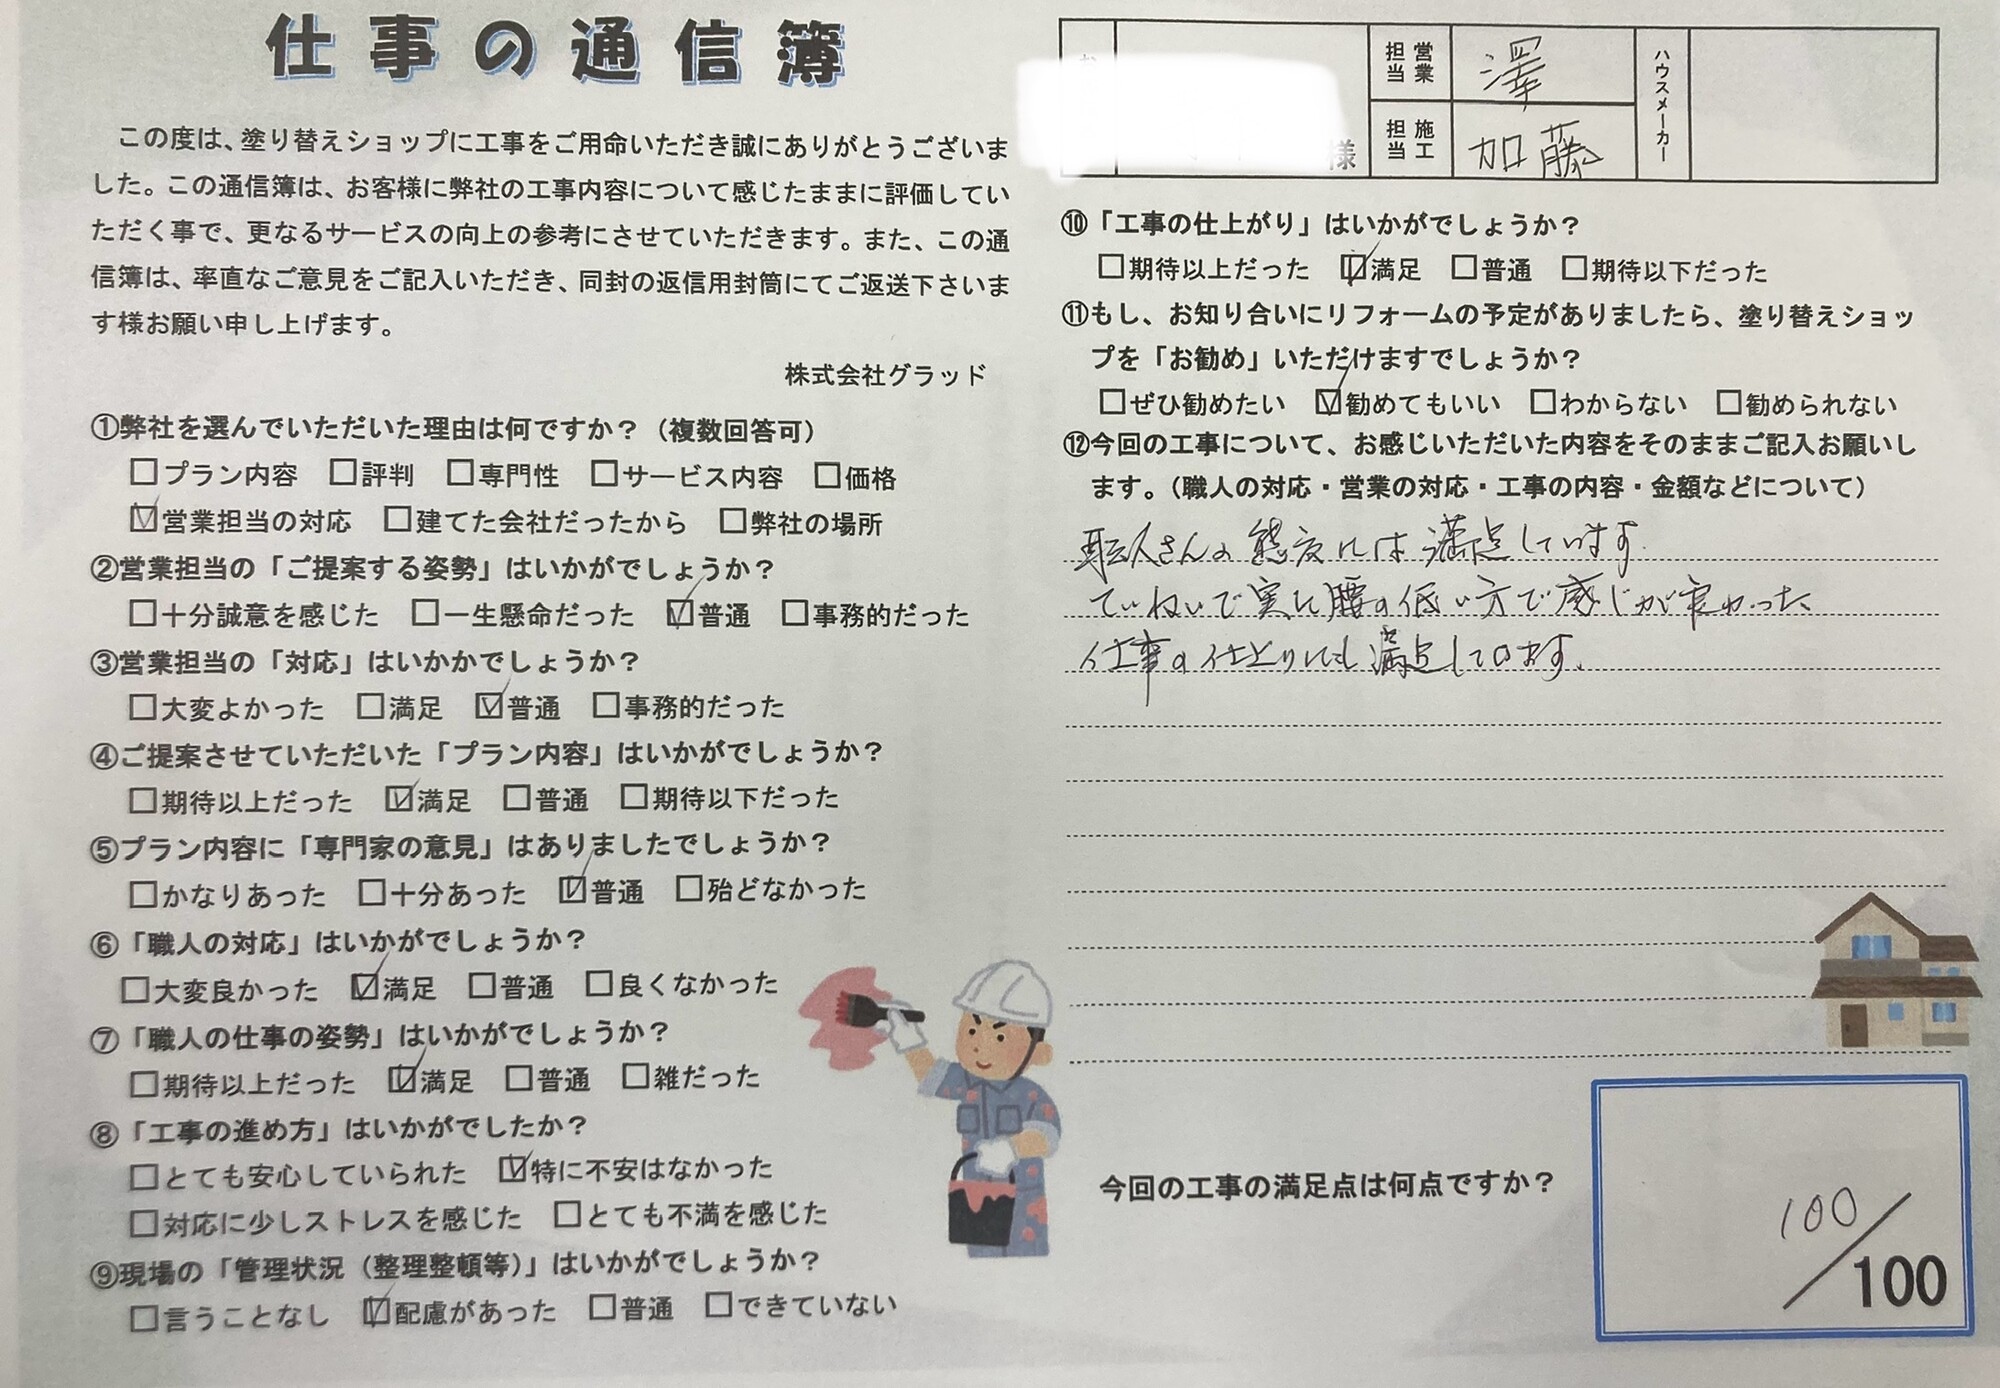 仕事の通信簿
この度は、塗り替えショップに工事をご用命いただき誠にありがとうございま
した。この通信簿は、お客様に弊社の工事内容について感じたままに評価してい
ただく事で、更なるサービスの向上の参考にさせていただきます。また、この通
信簿は、率直なご意見をご記入いただき、同封の返信用封筒にてご返送下さいま
す様お願い申し上げます。
株式会社グラッド
①弊社を選んでいただいた理由は何ですか？（複数回答可）
□プラン内容 □評判 □専門性 □サービス内容 □価格
☑営業担当の対応 □建てた会社だったから □弊社の場所
②営業担当の「ご提案する姿勢」はいかがでしょうか？
□十分誠意を感じた □一生懸命だった ☑普通 □事務的だった
③営業担当の「対応」はいかかでしょうか？
□大変よかった □満足 ☑普通 □事務的だった
④ご提案させていただいた「プラン内容」はいかがでしょうか？
□期待以上だった ☑満足 □普通 □期待以下だった
⑤プラン内容に「専門家の意見」はありましたでしょうか？
□かなりあった □十分あった ☑普通 □殆どなかった
⑥「職人の対応」はいかがでしょうか？
□大変良かった ☑満足 □普通 □良くなかった
⑦「職人の仕事の姿勢」はいかがでしょうか？
□期待以上だった ☑満足 □普通 □雑だった
⑧「工事の進め方」はいかがでしたか？
□とても安心していられた ☑特に不安はなかった
□対応に少しストレスを感じた □とても不満を感じた
⑨現場の「管理状況（整理整頓等）」はいかがでしょうか？
□言うことなし ☑配慮があった □普通 □できていない
様
営業担当 澤
施工担当 加藤
ハウスメーカー
⑩「工事の仕上がり」はいかがでしょうか？
□期待以上だった ☑満足 □普通 □期待以下だった
⑪もし、お知り合いにリフォームの予定がありましたら、塗り替えショッ
プを「お勧め」いただけますでしょうか？
□ぜひ勧めたい ☑勧めてもいい □わからない □勧められない
⑫今回の工事について、お感じいただいた内容をそのままご記入お願いし
ます。（職人の対応・営業の対応・工事の内容・金額などについて）
職人さんの態度には満足しています.
ていねいで実に腰の低い方で感じが良かった
仕事の仕上りにも満足しております.
今回の工事の満足点は何点ですか？
100/100